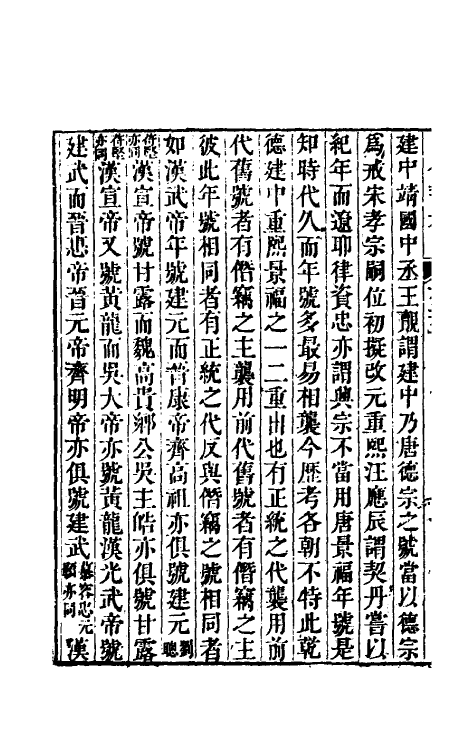 建中靖國中丞王覿謂建中乃唐德宗之號當以德宗
爲戒宋孝宗嗣位初擬改元重熙汪應辰謂契丹嘗以
紀年而遼耶律資忠亦謂興宗不當用唐景福年號是
知時代久而年號多最易相襲今歷考各朝不特此乾
德建中重熙景福之一二重出也有正統之代襲用前
代舊號者有僭竊之主襲用前代舊號者有僭竊之主
彼此年號相同者有正統之代反與僭竊之號相同者
如漢武帝年號建元而晉康帝齊高祖亦俱號建元劉聰
苻堅亦同漢宣帝號甘露而魏高貴鄉公吳王皓亦俱號甘露
苻堅亦同漢宣帝又號黃龍而吳大帝亦號黃龍漢光武帝號
建武而晉惠帝晉元帝齊明帝亦俱號建武慕容忠元顥亦同漢